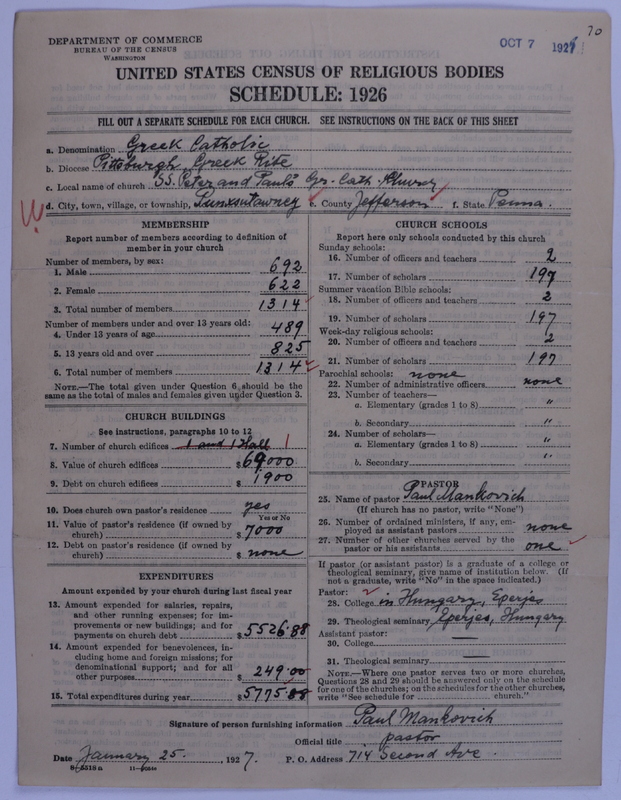 70
DEPARTMENT OF COMMERCE
BUREAU OF THE CENSUS
WASHINGTON
OCT 7 1926
UNITED STATES CENSUS OF RELIGIOUS BODIES
SCHEDULE: 1926
FILL OUT A SEPARATE SCHEDULE FOR EACH CHURCH. SEE INSTRUCTIONS ON THE BACK OF THIS SHEET
a. Denomination Greek Catholic
b. Diocese Pittsburgh, Greek Rite
c. Local name of church SS. Peter and Paul's Gr. Cath. Church
d. City, town, village, or township, Punxsutawney e. County Jefferson f. State Penna.
MEMBERSHIP
Report number of members according to definition of
member in your church
Number of members, by sex:
1. Male 692
2. Female 622
3. Total number of members 1314
Number of members under and over 13 years old:
4. Under 13 years of age 489
5. 13 years old and over 825
6. Total number of members 1314
NOTE.—The total given under Question 6 should be
the same as the total of males and females given under Question 3.
CHURCH BUILDINGS
See instructions, paragraphs 10 to 12
7. Number of church edifices 1 and 1 Hall 1
8. Value of church edifices $69000
9. Debt on church edifices $1900
10. Does church own pastor's residence yes
Yes or No
11. Value of pastor's residence (if owned by
church) $7000
12. Debt on pastor's residence (if owned by
church) $none
EXPENDITURES
Amount expended by your church during last fiscal year
13. Amount expended for salaries, repairs,
and other running expenses; for im-
provements or new buildings; and for
payments on church debt $5526.88
14. Amount expended for benevolences, in-
cluding home and foreign missions; for
denominational support; and for all
other purposes $249.00
15. Total expenditures during year $5775.88
CHURCH SCHOOLS
Report here only schools conducted by this church
Sunday schools:
16. Number of officers and teachers 2
17. Number of scholars 197
Summer vacation Bible schools:
18. Number of officers and teachers 2
19. Number of scholars 197
Week-day religious schools:
20. Number of officers and teachers 2
21. Number of scholars 197
Parochial schools: none
22. Number of administrative officers none
23. Number of teachers—
a. Elementary (grades 1 to 8) "
b. Secondary "
24. Number of scholars—
a. Elementary (grades 1 to 8) "
b. Secondary "
PASTOR
25. Name of pastor Paul Mankovich
(If church has no pastor, write "None")
26. Number of ordained ministers, if any, em-
ployed as assistant pastors none
27. Number of other churches served by the
pastor or his assistants one
If pastor (or assistant pastor) is a graduate of a college or
theological seminary, give name of institution below. (If
not a graduate, write "No" in the space indicated.)
Pastor:
28. College in Hungary, Eperjes
29. Theological seminary Eperjes, Hungary
Assistant pastor:
30. College
31. Theological seminary
NOTE.—Where one pastor serves two or more churches,
Questions 28 and 29 should be answered only on the schedule
for one of the churches; on the schedules for the other churches,
write "See schedule for church."
Signature of person furnishing information Paul Mankovich
Official title pastor
Date January 25. 1927. P. O. Address 714 Second Ave